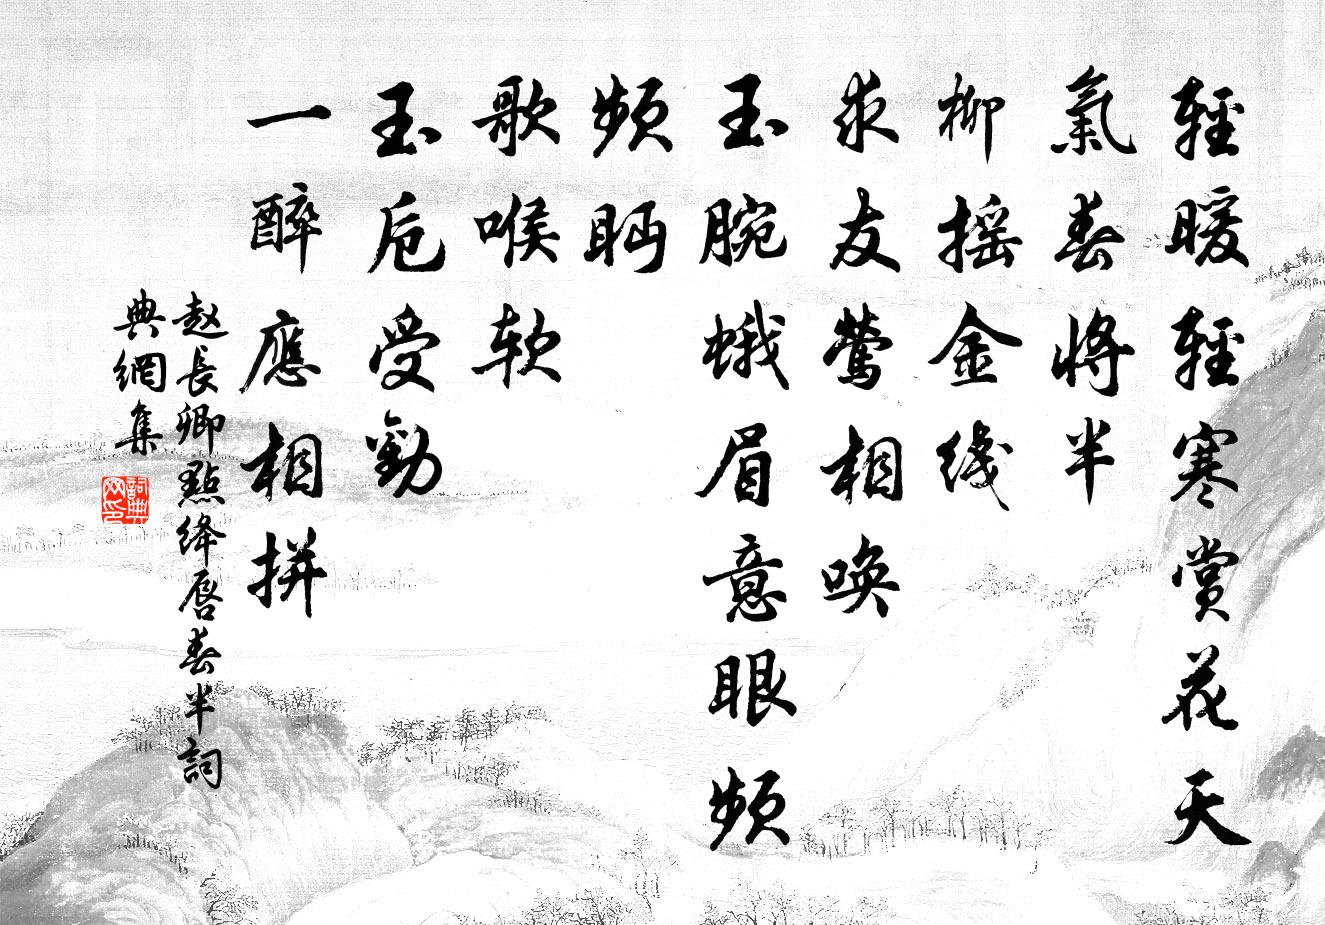 輕暖輕寒賞花天
氣春將半
柳摇金綫
求友鶯相唤
玉腕蛾眉意眼頻
頻眄
歌喉软
玉卮受勸
一醉應相拼
赵長卿點绛唇春半詞
典網集
詞典網印